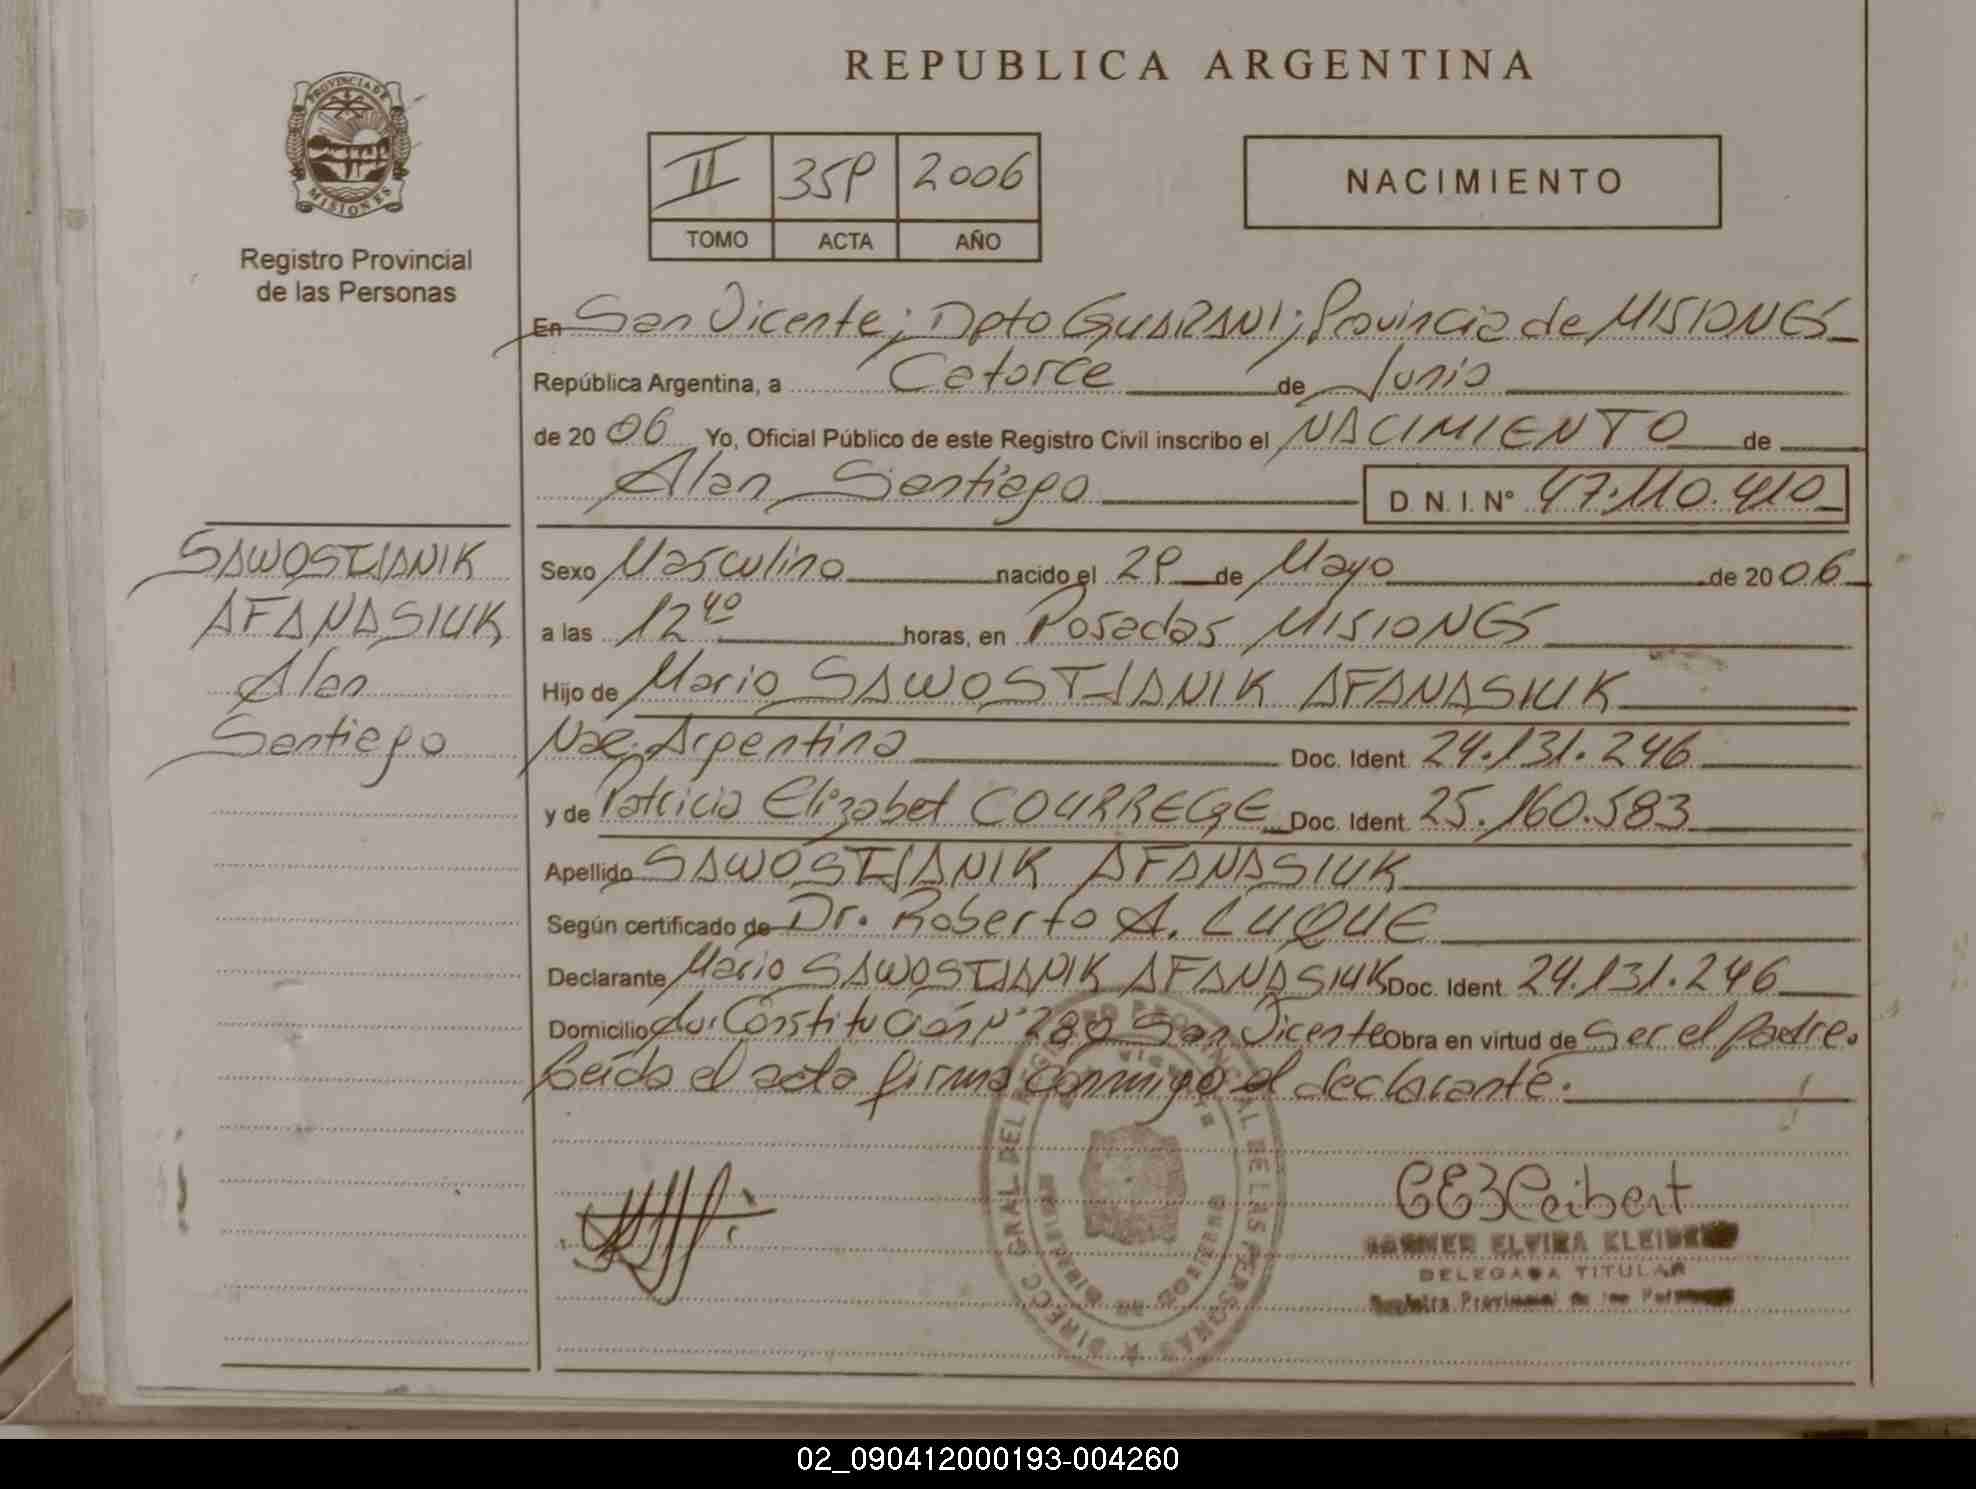 REPUBLICA ARGENTINA
PROVINCIA DE
MISIONES
Registro Provincial
de las Personas
II 359 2006
TOMO ACTA AÑO
NACIMIENTO
En San Vicente; Dpto GUARANI; Provincia de MISIONES
República Argentina, a Catorce de Junio
de 2006 Yo, Oficial Público de este Registro Civil inscribo el NACIMIENTO de
Alan Santiago D. N. I. Nº 47.110.410
SAWOSTJANIK
AFANASIUK
Alan
Santiago
Sexo Masculino nacido el 29 de Mayo de 2006
a las 12 40 horas, en Posadas MISIONES
Hijo de Mario SAWOSTJANIK AFANASIUK
Nac. Argentina Doc. Ident. 24.131.246
y de Patricia Elizabet COURREGE Doc. Ident. 25.160.583
Apellido SAWOSTJANIK AFANASIUK
Según certificado de Dr. Roberto A. LUQUE
Declarante Mario SAWOSTJANIK AFANASIUK Doc. Ident. 24.131.246
Domicilio Av. Constitución Nº 280 San Vicente Obra en virtud de Ser el padre.
Leída el acta firma conmigo el declarante.
DIRECC. GRAL DEL REGISTRO PROVINCIAL DE LAS PERSONAS
CEKleibert
ELVIRA
DELEGADA TITULAR
Registro Provincial de las Personas
02_090412000193-004260